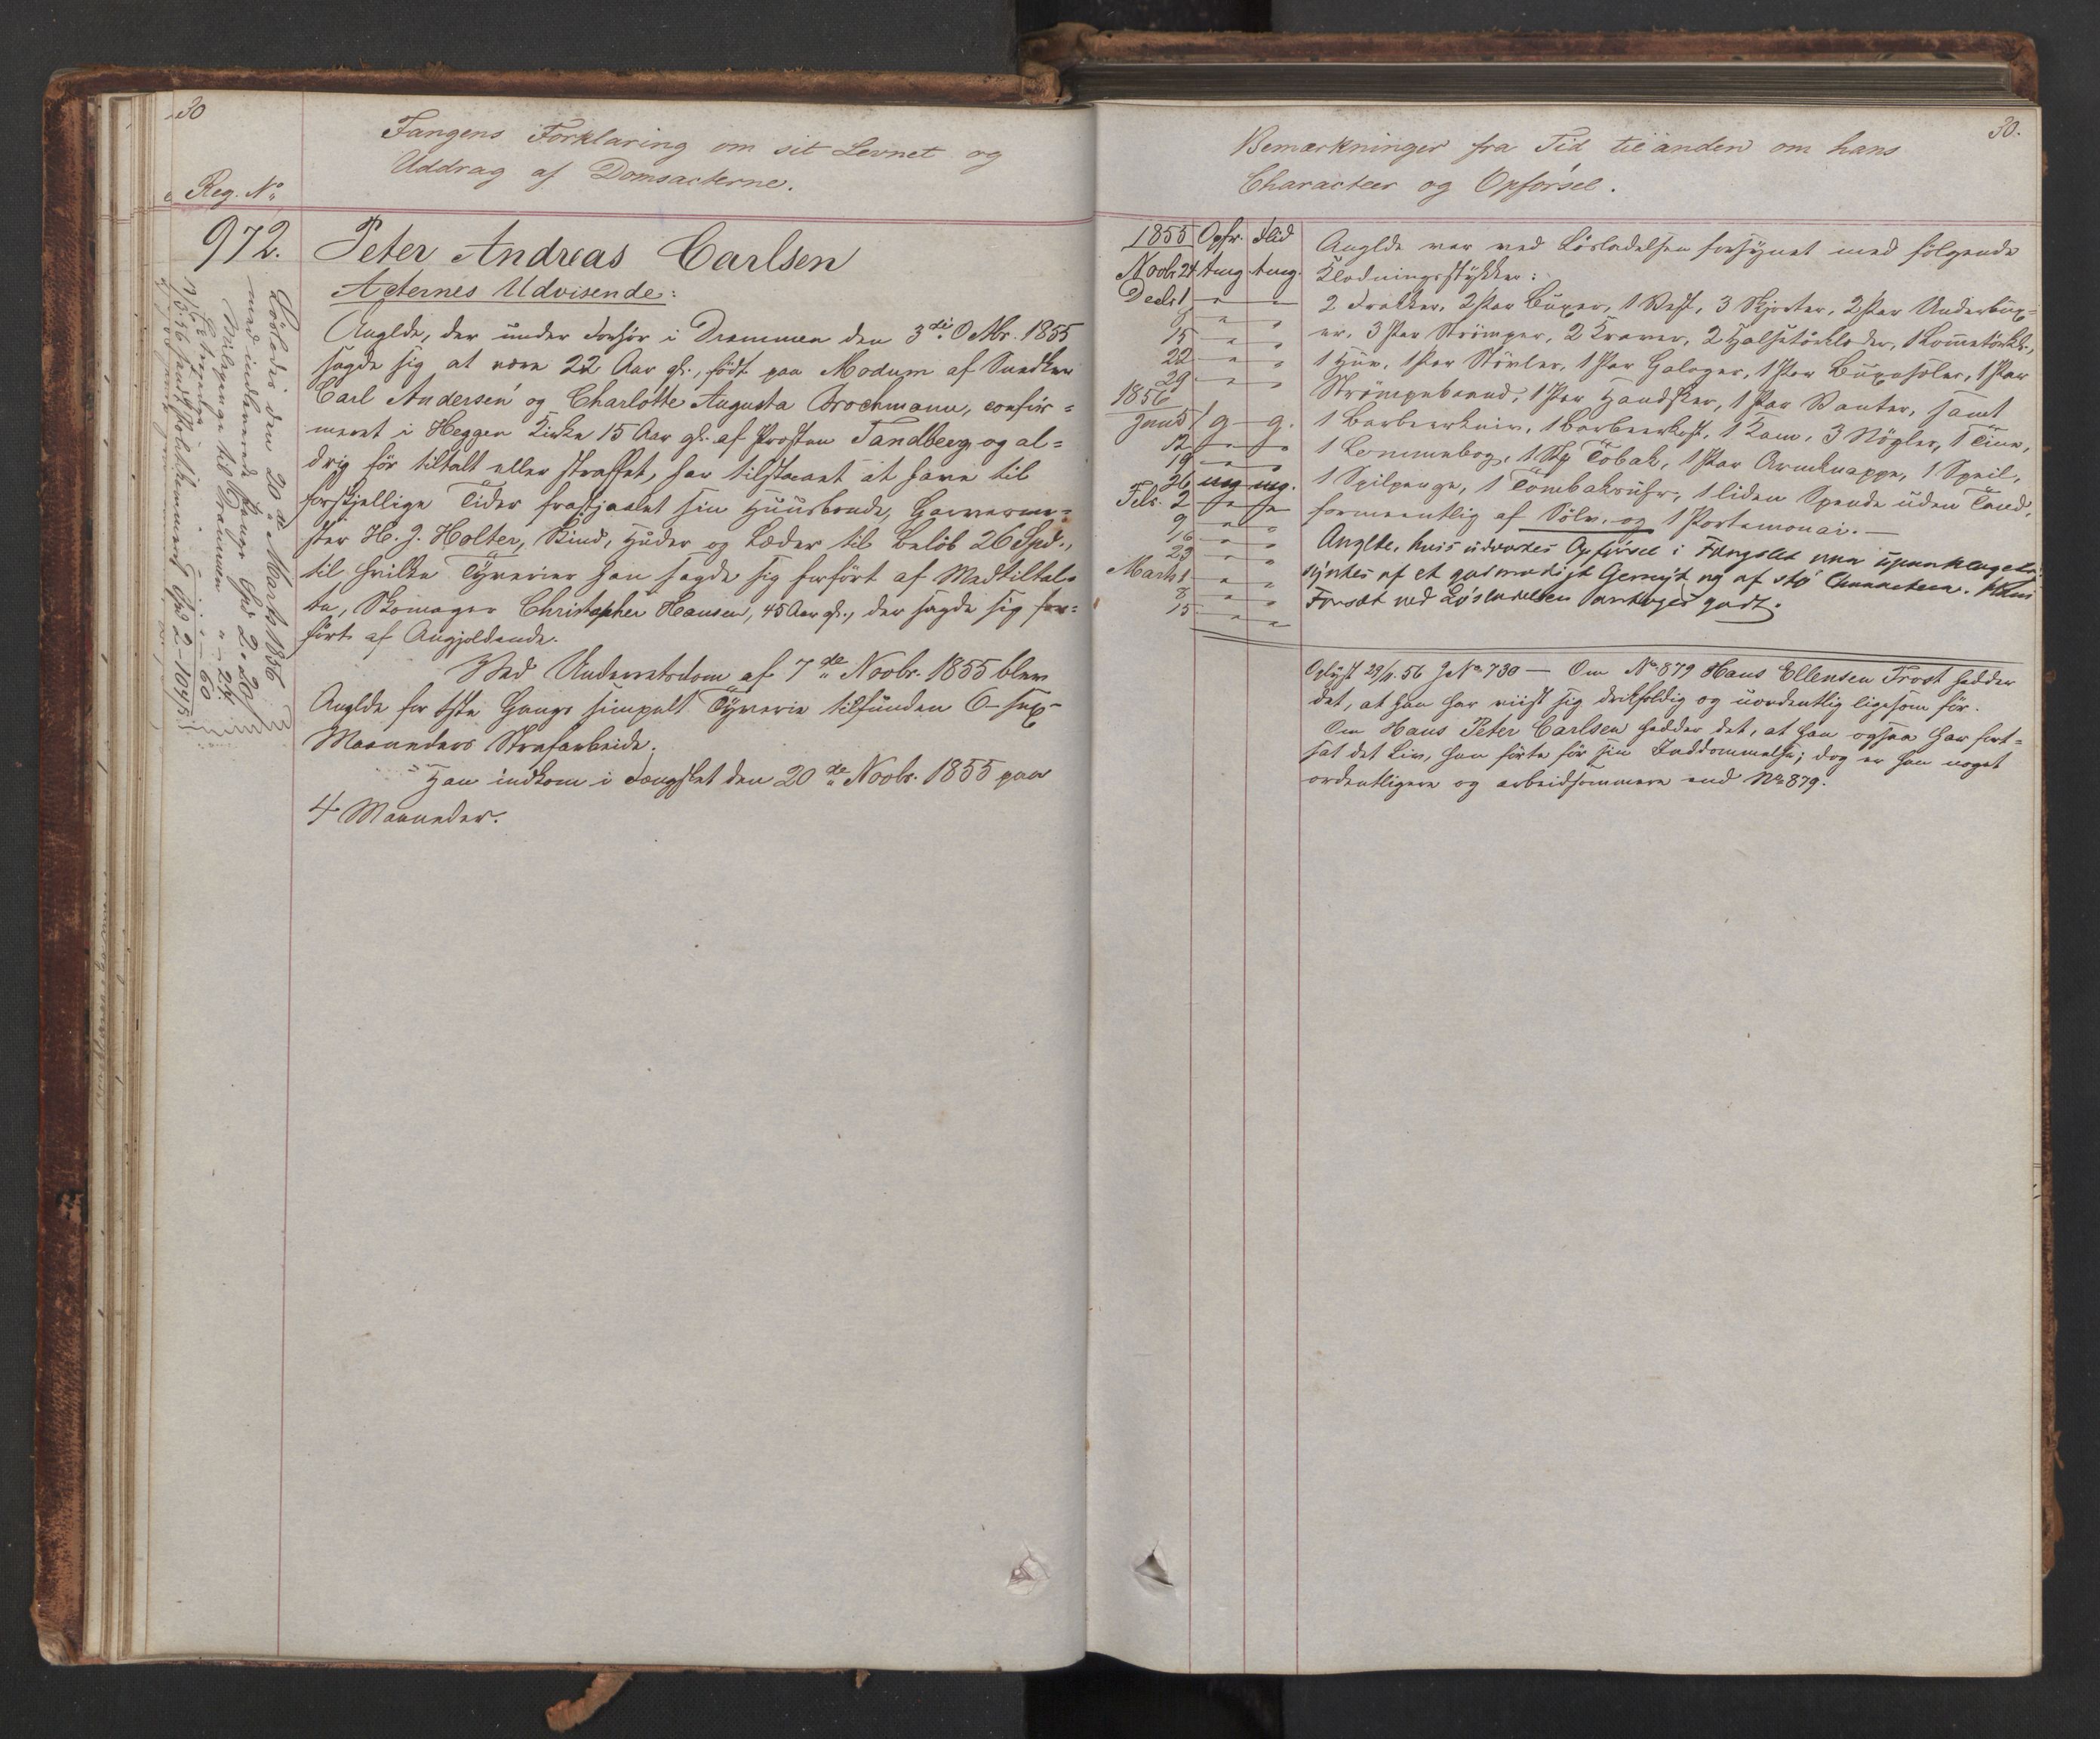 30
Fangens Forklaring om sit Levnet og
Uddrag af Domsacterne.
Reg. No
972.
Peter Andreas Carlsen
Acternes Udvisende:
Anglde, der under Forhör i Drammen den 3die Octbr. 1855
sagde sig at være 22 Aar gl., födt paa Modum af Snedker
Carl Andersen og Charlotte Augusta Brochmann, confir=
meret i Heggen Kirke 15 Aar gl. af Provsten Tandberg og al=
drig för tiltalt eller straffet, har tilstaaet at have til
forskjellige Tider frastjaalet sin Huusbonde, Garverme=
ster H. J. Holter, Skind, Huder og Læder til Belöb 26 Spd.,
til hvilke Tyverier han sagde sig forfört af Medtiltal=
te, Skomager Christopher Hansen, 45 Aar gl., der sagde sig for=
fört af Angjeldende.
Ved Underretsdom af 7de Novbr. 1855 blev
Anglde for 1ste Gangs simpelt Tyverie tilfunden 6 - sex -
Maaneders Strafarbeide.
Han indkom i Fængslet den 20de Novbr. 1855 paa
4 Maaneder.
Löslades den 20de Marts 1856
med indleverede Penge Spd 2. 20 s
Milepenge til Drammen " - 24.
30.
Bemærkninger fra Tid til anden om hans
Characteer og Opförsel.
1855 Opfr. Flid
Novbr 24 tmg. tmg.
Decbr 1 " "
8 " "
15 " "
22 " "
29 " "
1856
Janr 5 g g.
12 " "
19 " "
26 mg mg.
Febr. 2 " "
9 " "
16 " "
23 " "
Marts 1 " "
8 " "
15 " "
Anglde var ved Lösladelsen forsynet med fölgende
Klædningsstykker:
2 Frakker, 2 Par Buxer, 1 Vest, 3 Skjorter, 2 Par Underbux=
er, 3 Par Strömper, 2 Kraver, 2 Halstörklæder, 1 Lommetörkl.,
1 Huv, 1 Par Stövler, 1 Par Galoger, 1 Par Buxeseler, 1 Par
Strömpebaand, 1 Par Handsker, 1 Par Vanter, samt
1 Barbeerkniv, 1 Barbeerkost, 1 Kam, 3 Nögler, 1 Tine,
1 Lommebog, 1 Stk Tobak, 1 Par Armknappe, 1 Speil,
1 Spilpenge, 1 Tombaksuhr, 1 liden Spende uden Tand,
formeentlig af Sölv, og 1 Portemonai. —
Anglde, hvis udvortes Opförsel i Fængslet var upaaklagelig
syntes af et godmodigt Gemyt og af slö Characteer. Hans
Forsæt ved Lösladelsen antages godt.
Oplyst 29/11. 56 J No 730 — Om No 879 Hans Ellensen Trost hedder
det, at han har viist sig drikfældig og uordentlig ligesom för.
Om Hans Peter Carlsen hedder det, at han ogsaa har fort=
sat det Liv, han förte för sin Inddommelse; dog er han noget
ordentligere og arbeidsommere end No 879.